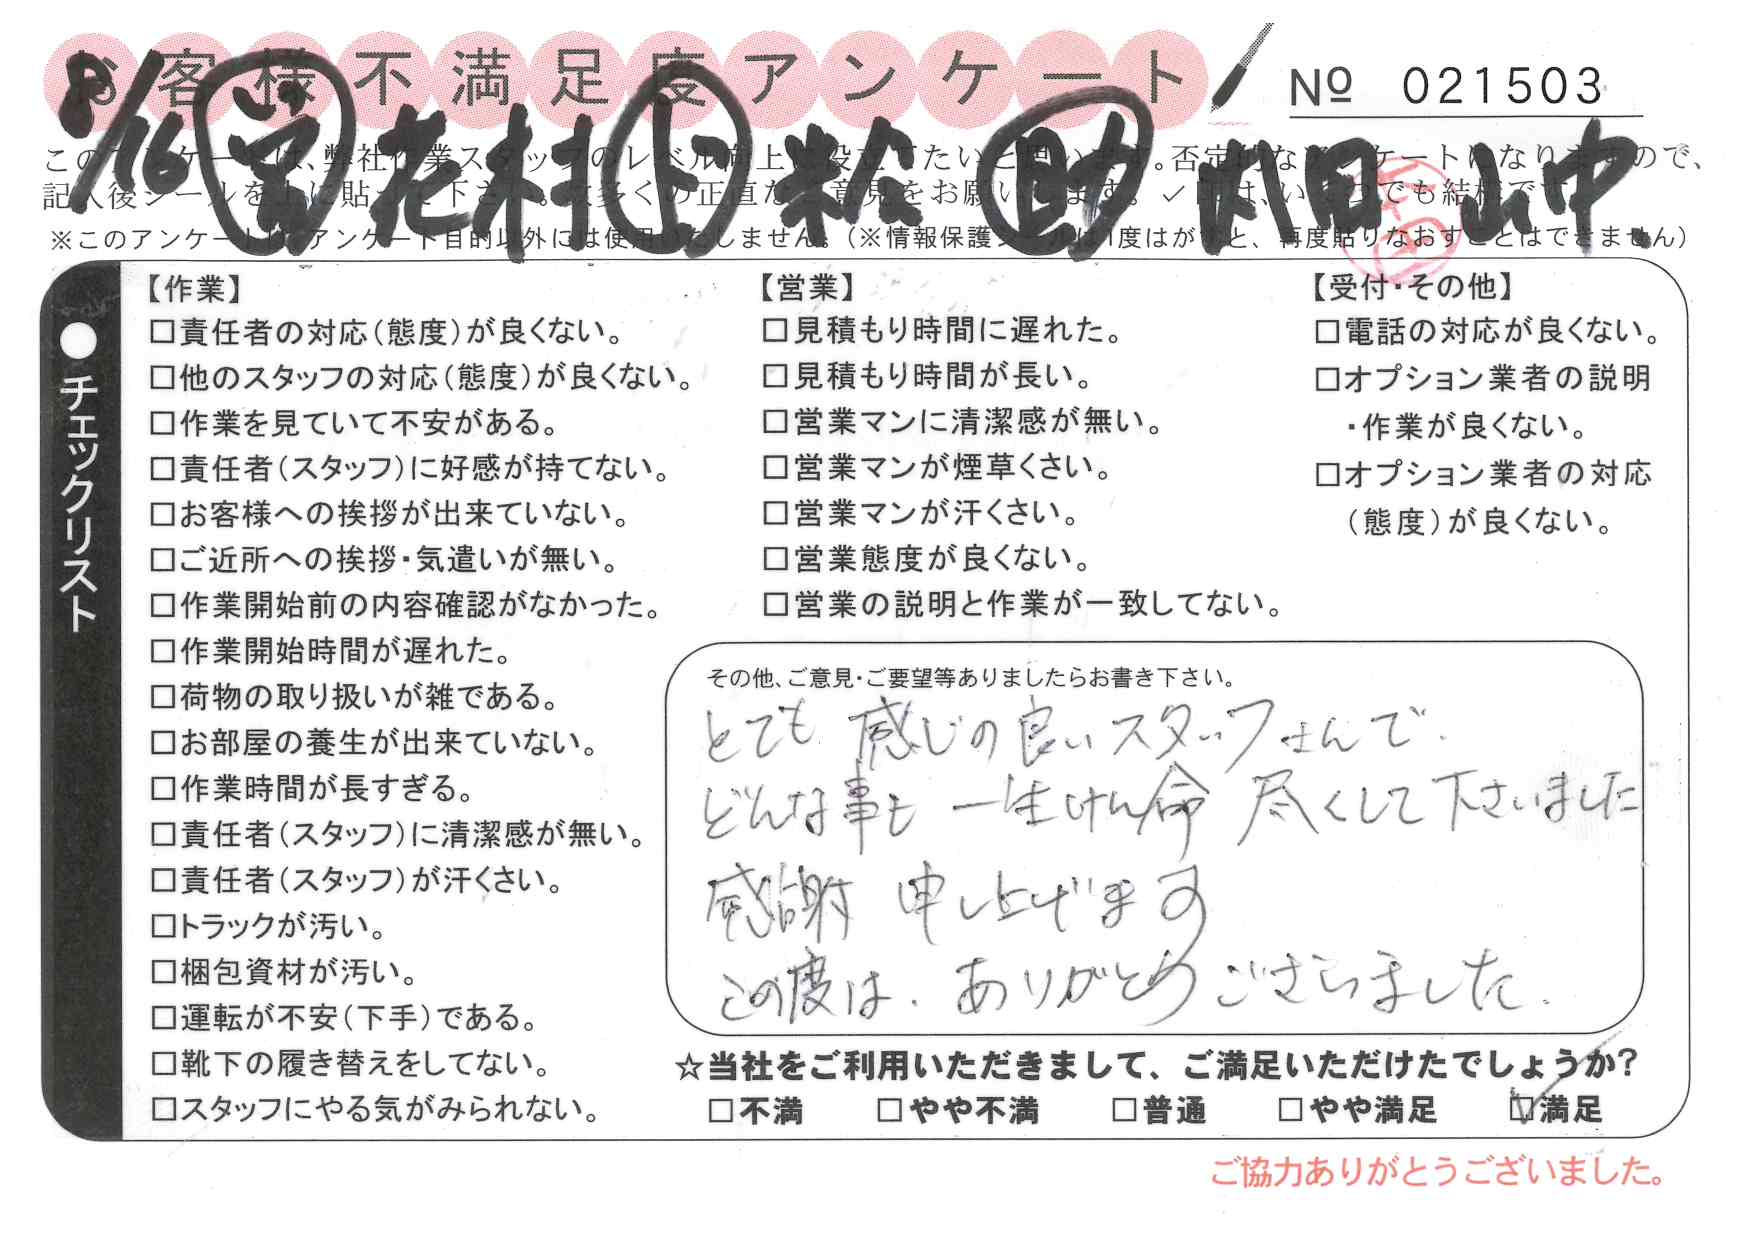 お客様不満足度アンケート
№ 021503
8/16 営 花村 ト 米松 助 内田 山中
このアンケートは、弊社作業スタッフのレベル向上に役立てたいと思います。否定的なアンケートになりますので、
記入後シールを上に貼って下さい。数多くの正直なご意見をお願いします。✓印は、いくつでも結構です。
※このアンケートは、アンケート目的以外には使用いたしません。(※情報保護シールは1度はがすと、再度貼りなおすことはできません)
●チェックリスト
【作業】
□責任者の対応(態度)が良くない。
□他のスタッフの対応(態度)が良くない。
□作業を見ていて不安がある。
□責任者(スタッフ)に好感が持てない。
□お客様への挨拶が出来ていない。
□ご近所への挨拶・気遣いが無い。
□作業開始前の内容確認がなかった。
□作業開始時間が遅れた。
□荷物の取り扱いが雑である。
□お部屋の養生が出来ていない。
□作業時間が長すぎる。
□責任者(スタッフ)に清潔感が無い。
□責任者(スタッフ)が汗くさい。
□トラックが汚い。
□梱包資材が汚い。
□運転が不安(下手)である。
□靴下の履き替えをしてない。
□スタッフにやる気がみられない。
【営業】
□見積もり時間に遅れた。
□見積もり時間が長い。
□営業マンに清潔感が無い。
□営業マンが煙草くさい。
□営業マンが汗くさい。
□営業態度が良くない。
□営業の説明と作業が一致してない。
【受付・その他】
□電話の対応が良くない。
□オプション業者の説明
・作業が良くない。
□オプション業者の対応
(態度)が良くない。
その他、ご意見・ご要望等ありましたらお書き下さい。
とても 感じの良いスタッフさんで、
どんな事も 一生けん命 尽くして下さいました
感謝 申し上げます
この度は、ありがとうございました。
☆当社をご利用いただきまして、ご満足いただけたでしょうか?
□不満 □やや不満 □普通 □やや満足 ☑満足
ご協力ありがとうございました。